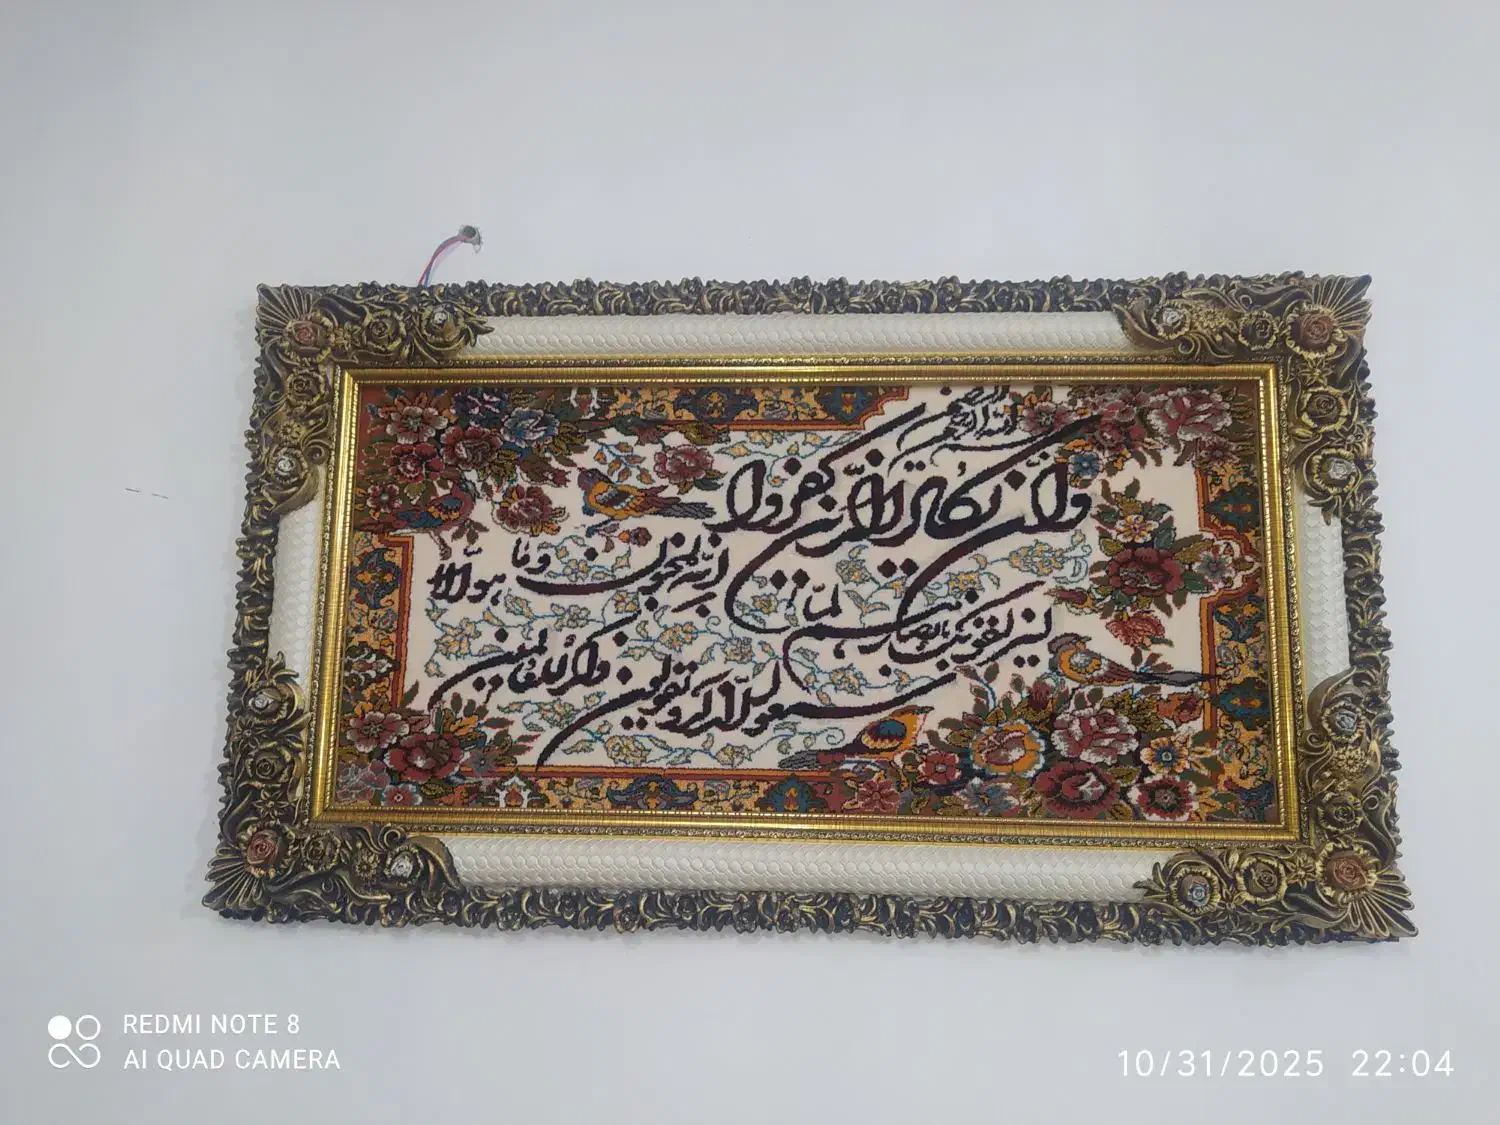 بسم الله الرحمن الرحیم
وَاِنْ یَکادُ الَّذینَ کَفَروا
لیزلقونک بابصارهم لمّا
سمعوا الذکر و یقولون
انّه لمجنون و ما هو الّا
ذکرٌ للعالمین
REDMI NOTE 8
AI QUAD CAMERA
10/31/2025 22:04